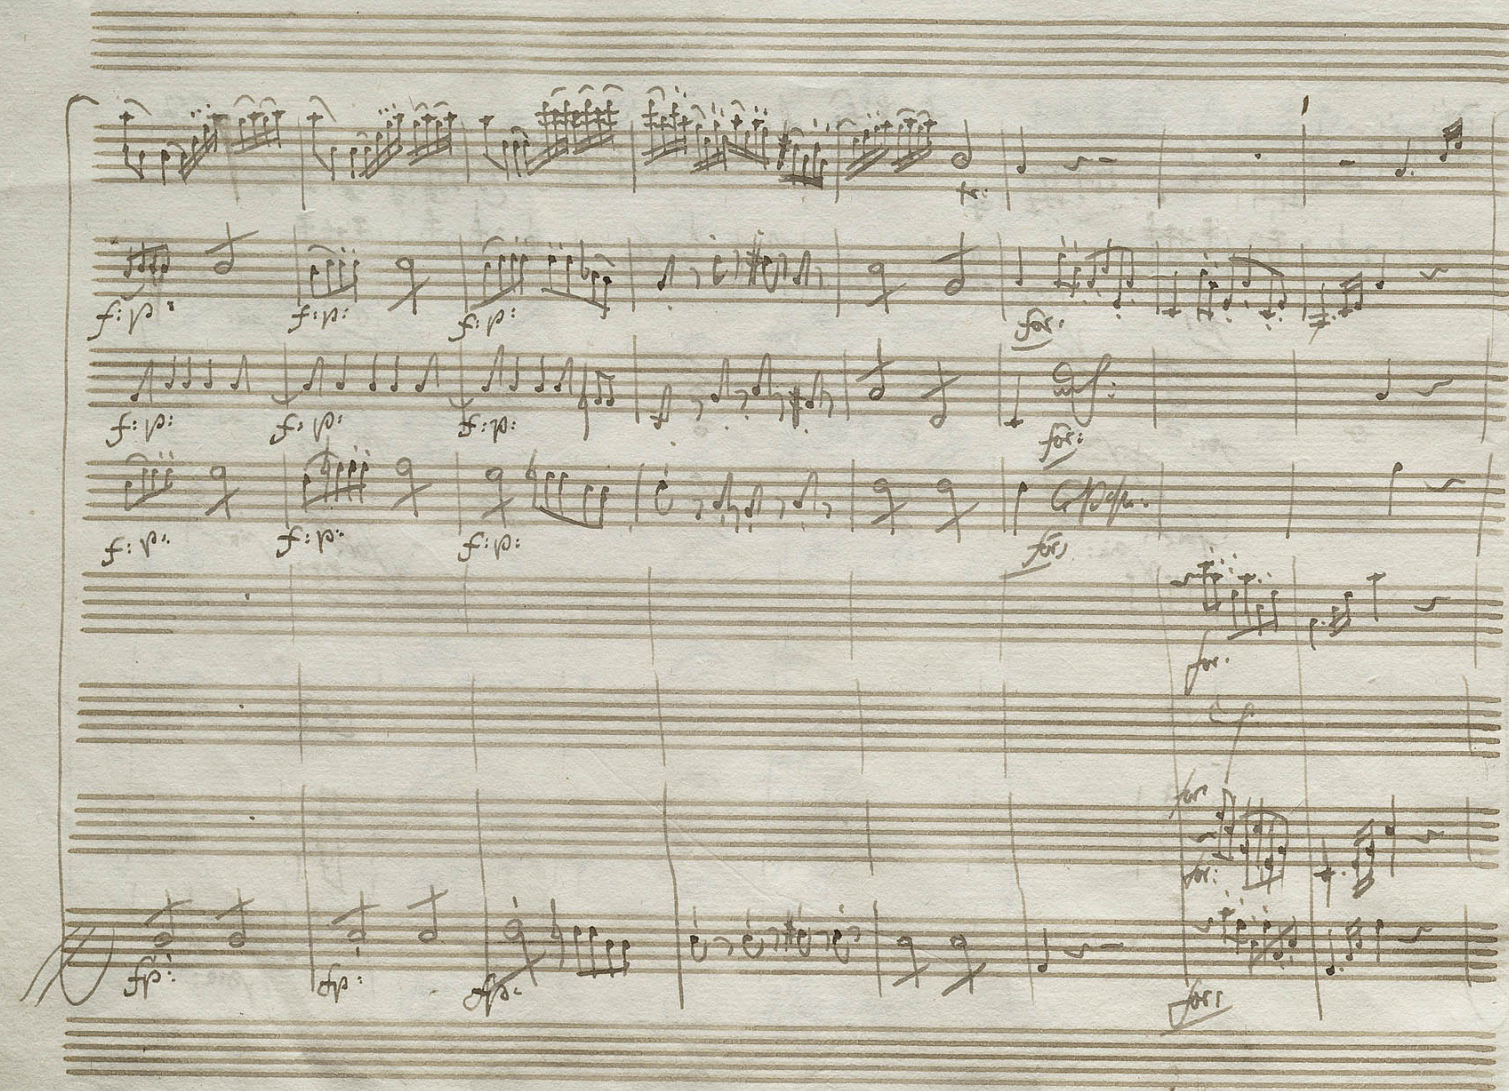 tr:
f: p: f: p: f: p: for:
f: p: f: p: f: p: for:
f: p: f: p: f: p: for
for:
for
for:
fp: fp: fp: for: